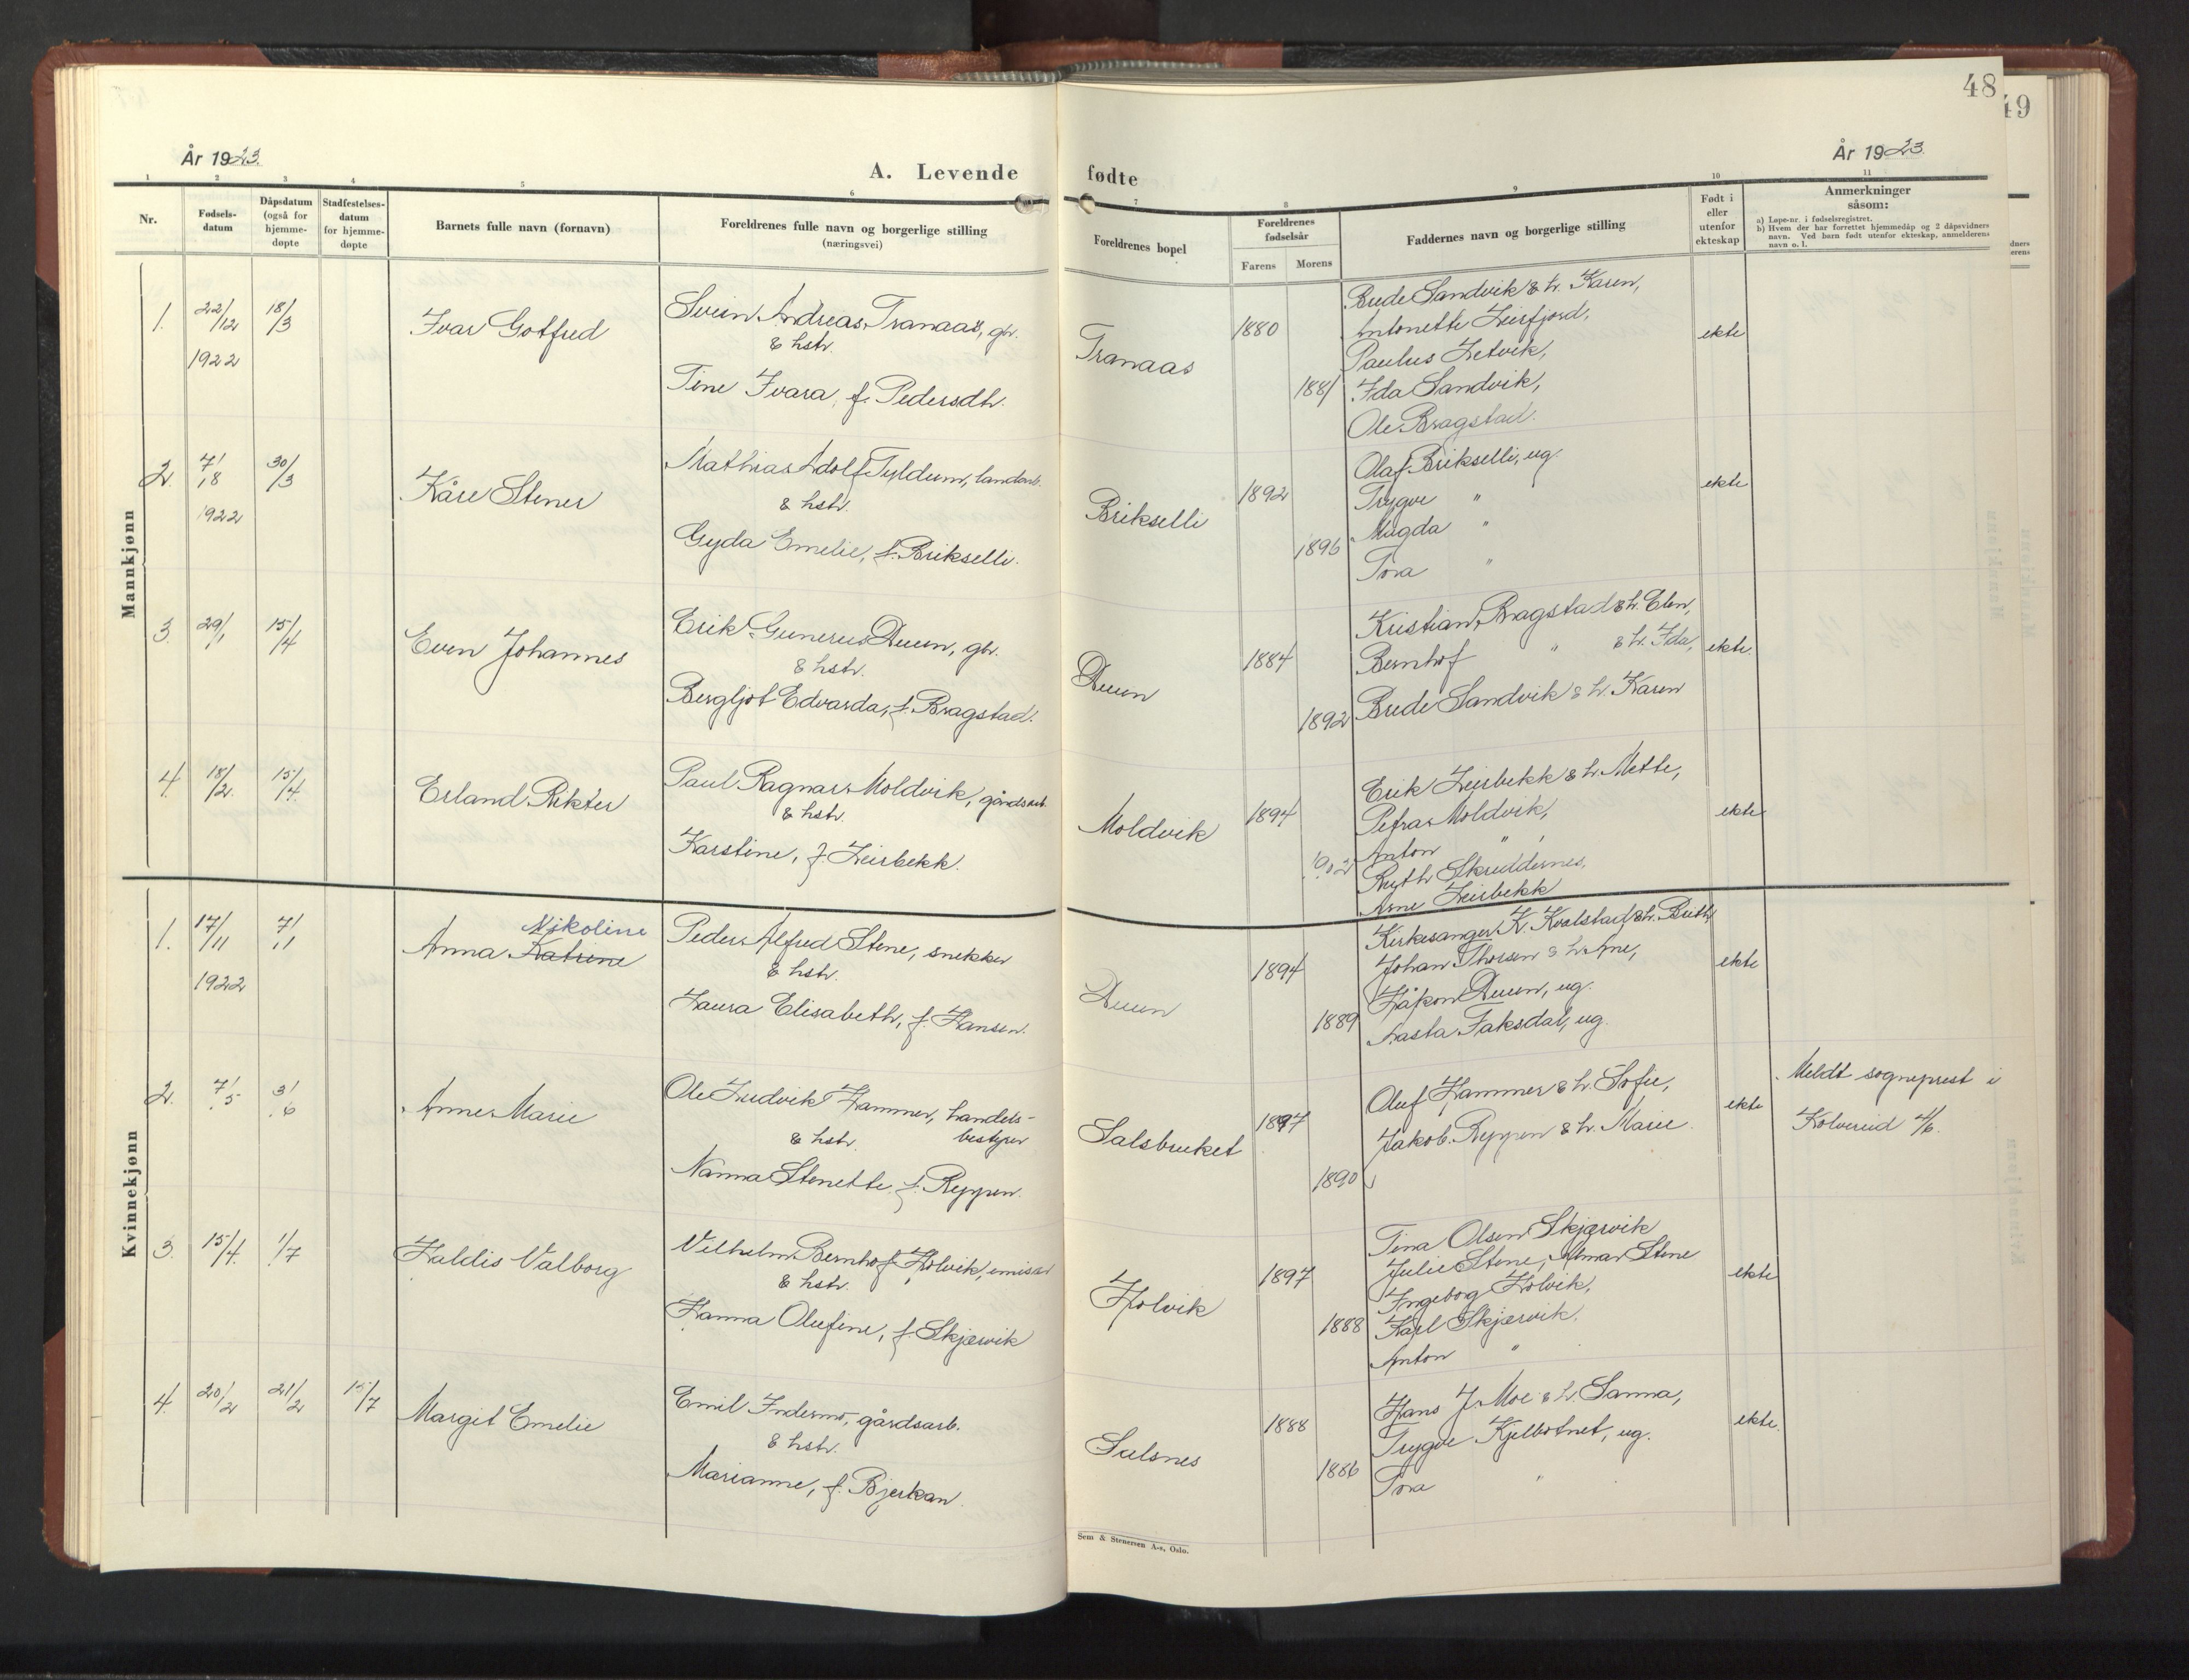 48
49
År 1923.
A. Levende
fødte
År 1923.
1 2 3 4 5 6 7 8 9 10 11
Nr.
Fødsels-
datum
Dåpsdatum
(også for
hjemme-
døpte
Stadfestelses-
datum
for hjemme-
døpte
Barnets fulle navn (fornavn)
Foreldrenes fulle navn og borgerlige stilling
(næringsvei)
Foreldrenes bopel
Foreldrenes
fødselsår
Farens Morens
Faddernes navn og borgerlige stilling
Født i
eller
utenfor
ekteskap
Anmerkninger
såsom:
a) Løpe-nr. i fødselsregistret.
b) Hvem der har forrettet hjemmedåp og 2 dåpsvidners
navn. Ved barn født utenfor ekteskap, anmelderens
navn o. l.
Mannkjønn
1. 22/12 1922 18/3
Ivar Gotfred
Svein Andreas Tranaas, gbr.
& hstr.
Tine Ivara, f. Pedersdtr.
Tranaas
1880
1881
Brede Sandvik & h. Karen,
Antonette Leirfjord,
Paulus Setvik,
Ida Sandvik,
Ole Bragstad.
ekte
2. 7/8 1922 30/3
Kåre Stener
Mathias Adolf Tyldum, landarb.
& hstr.
Gyda Emelie, f. Brikselli.
Brikselli
1892
1896
Olaf Brikselli, ug.
Trygve "
Magda "
Tora "
ekte
3. 29/1 15/4
Even Johannes
Erik Gunerus Duun, gbr.
& hstr.
Bergljot Edvarda, f. Bragstad.
Duun
1884
1892
Kristian Bragstad & h. Elen,
Bernhof " & h. Ida,
Brede Sandvik & h. Karen
ekte.
4. 18/2. 15/4.
Erland Rikter
Paul Ragnar Moldvik, gårdsarb.
& hstr.
Karstine, f Leirbekk.
Moldvik
1894
1902
Erik Leirbekk & h. Mette,
Petra Moldvik,
Anton "
Ruth Skreddernes,
Arne Leirbekk
ekte
Kvinnekjønn
1. 17/11 1922 7/1
Nikoline
Anna Katrine
Peder Alfred Stene, snekker
& hstr.
Laura Elisabeth, f. Hansen.
Duun
1894
1889
Kirkesanger K. Kvalstad & h. Brith
Johan Thorsen & h. Ane,
Håkon Duun, ug.
Aasta Faksdal, ug.
ekte
2. 7/5 3/6
Anne Marie
Ole Ludvik Hammer, handels-
& hstr. bestyrer
Nanna Stenette f. Reppen.
Salsbruket
1897
1890
Oluf Hammer & h. Sofie,
Jakob Reppen & h. Marie.
ekte
Meldt sogneprest i
Kolvereid 4/6.
3. 15/4. 1/7
Haldis Valborg
Vilhelm Bernhof Holvik, emisær
& hstr.
Hanna Olufine, f. Skjærvik
Holvik
1897
1888
Tina Olsen Skjærvik
Julie Stene, Almar Stene
Ingebog Holvik,
Karl Skjærvik.
Anton "
ekte
4. 20/2 21/2 15/7
Margit Emelie
Emil Indermo, gårdsarb.
& hstr.
Marianne, f. Bjerkan.
Salsnes
1888
1886
Hans J. Moe & h. Sanna,
Trygve Kjelbotnet, ug.
Tora "
ekte.
Sem & Stenersen A-s, Oslo.